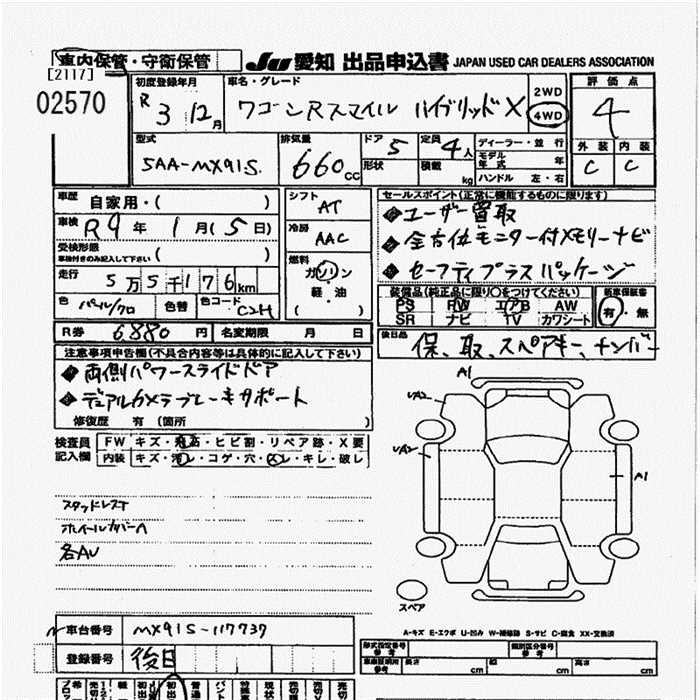 車内保管・守衛保管
JU 愛知 出品申込書 JAPAN USED CAR DEALERS ASSOCIATION
[2117]
02570
初度登録年月 R 3 12月
車名・グレード ワゴンRスマイル ハイブリッドX
2WD
4WD
評価点 4
外装 内装
C C
型式 5AA-MX91S.
排気量 660cc
ドア 5
形状
定員 4人
積載 kg
ディーラー・並行
モデル年式 年
ハンドル 左・右
車歴 自家用・( )
車検 R9年 1月(5日)
受検形態
車検付きのみ記入して下さい ( )
走行 5万5千176km
色 パール/クロ 色替 色コード C2H
R券 6,880円 名変期限 月 日
シフト AT
冷房 AAC
燃料
ガソリン
軽・油
( )
セールスポイント(正常に機能するものに限ります)
◆ユーザー買取
◆全方位モニター付メモリーナビ
◆セーフティプラスパッケージ
装備品(純正品に限り○をつけてください)
PS PW エアB AW
SR ナビ TV カワシート
新車保証書
有・無
後日品 保、取、スペアキー、ナンバー
注意事項申告欄(不具合内容等は具体的に記入して下さい)
◆両側パワースライドドア
◆デュアルカメラブレーキサポート
修復歴 有(箇所 )
検査員記入欄
FW キズ・飛石・ヒビ割・リペア跡・X要
内装 キズ・汚レ・コゲ・穴・スレ・キレ・破レ
スタッドレスT
ホイールカバーA
各AU
A1
UA2
UA2
A1
スペア
A-キズ E-エクボ U-凹み W-補修跡 S-サビ C-腐食 XX-交換済
車台番号 MX91S-117737
登録番号 後日
型式指定番号 類別区分番号
車庫証明用参考 長さ cm 幅 cm 高さ cm